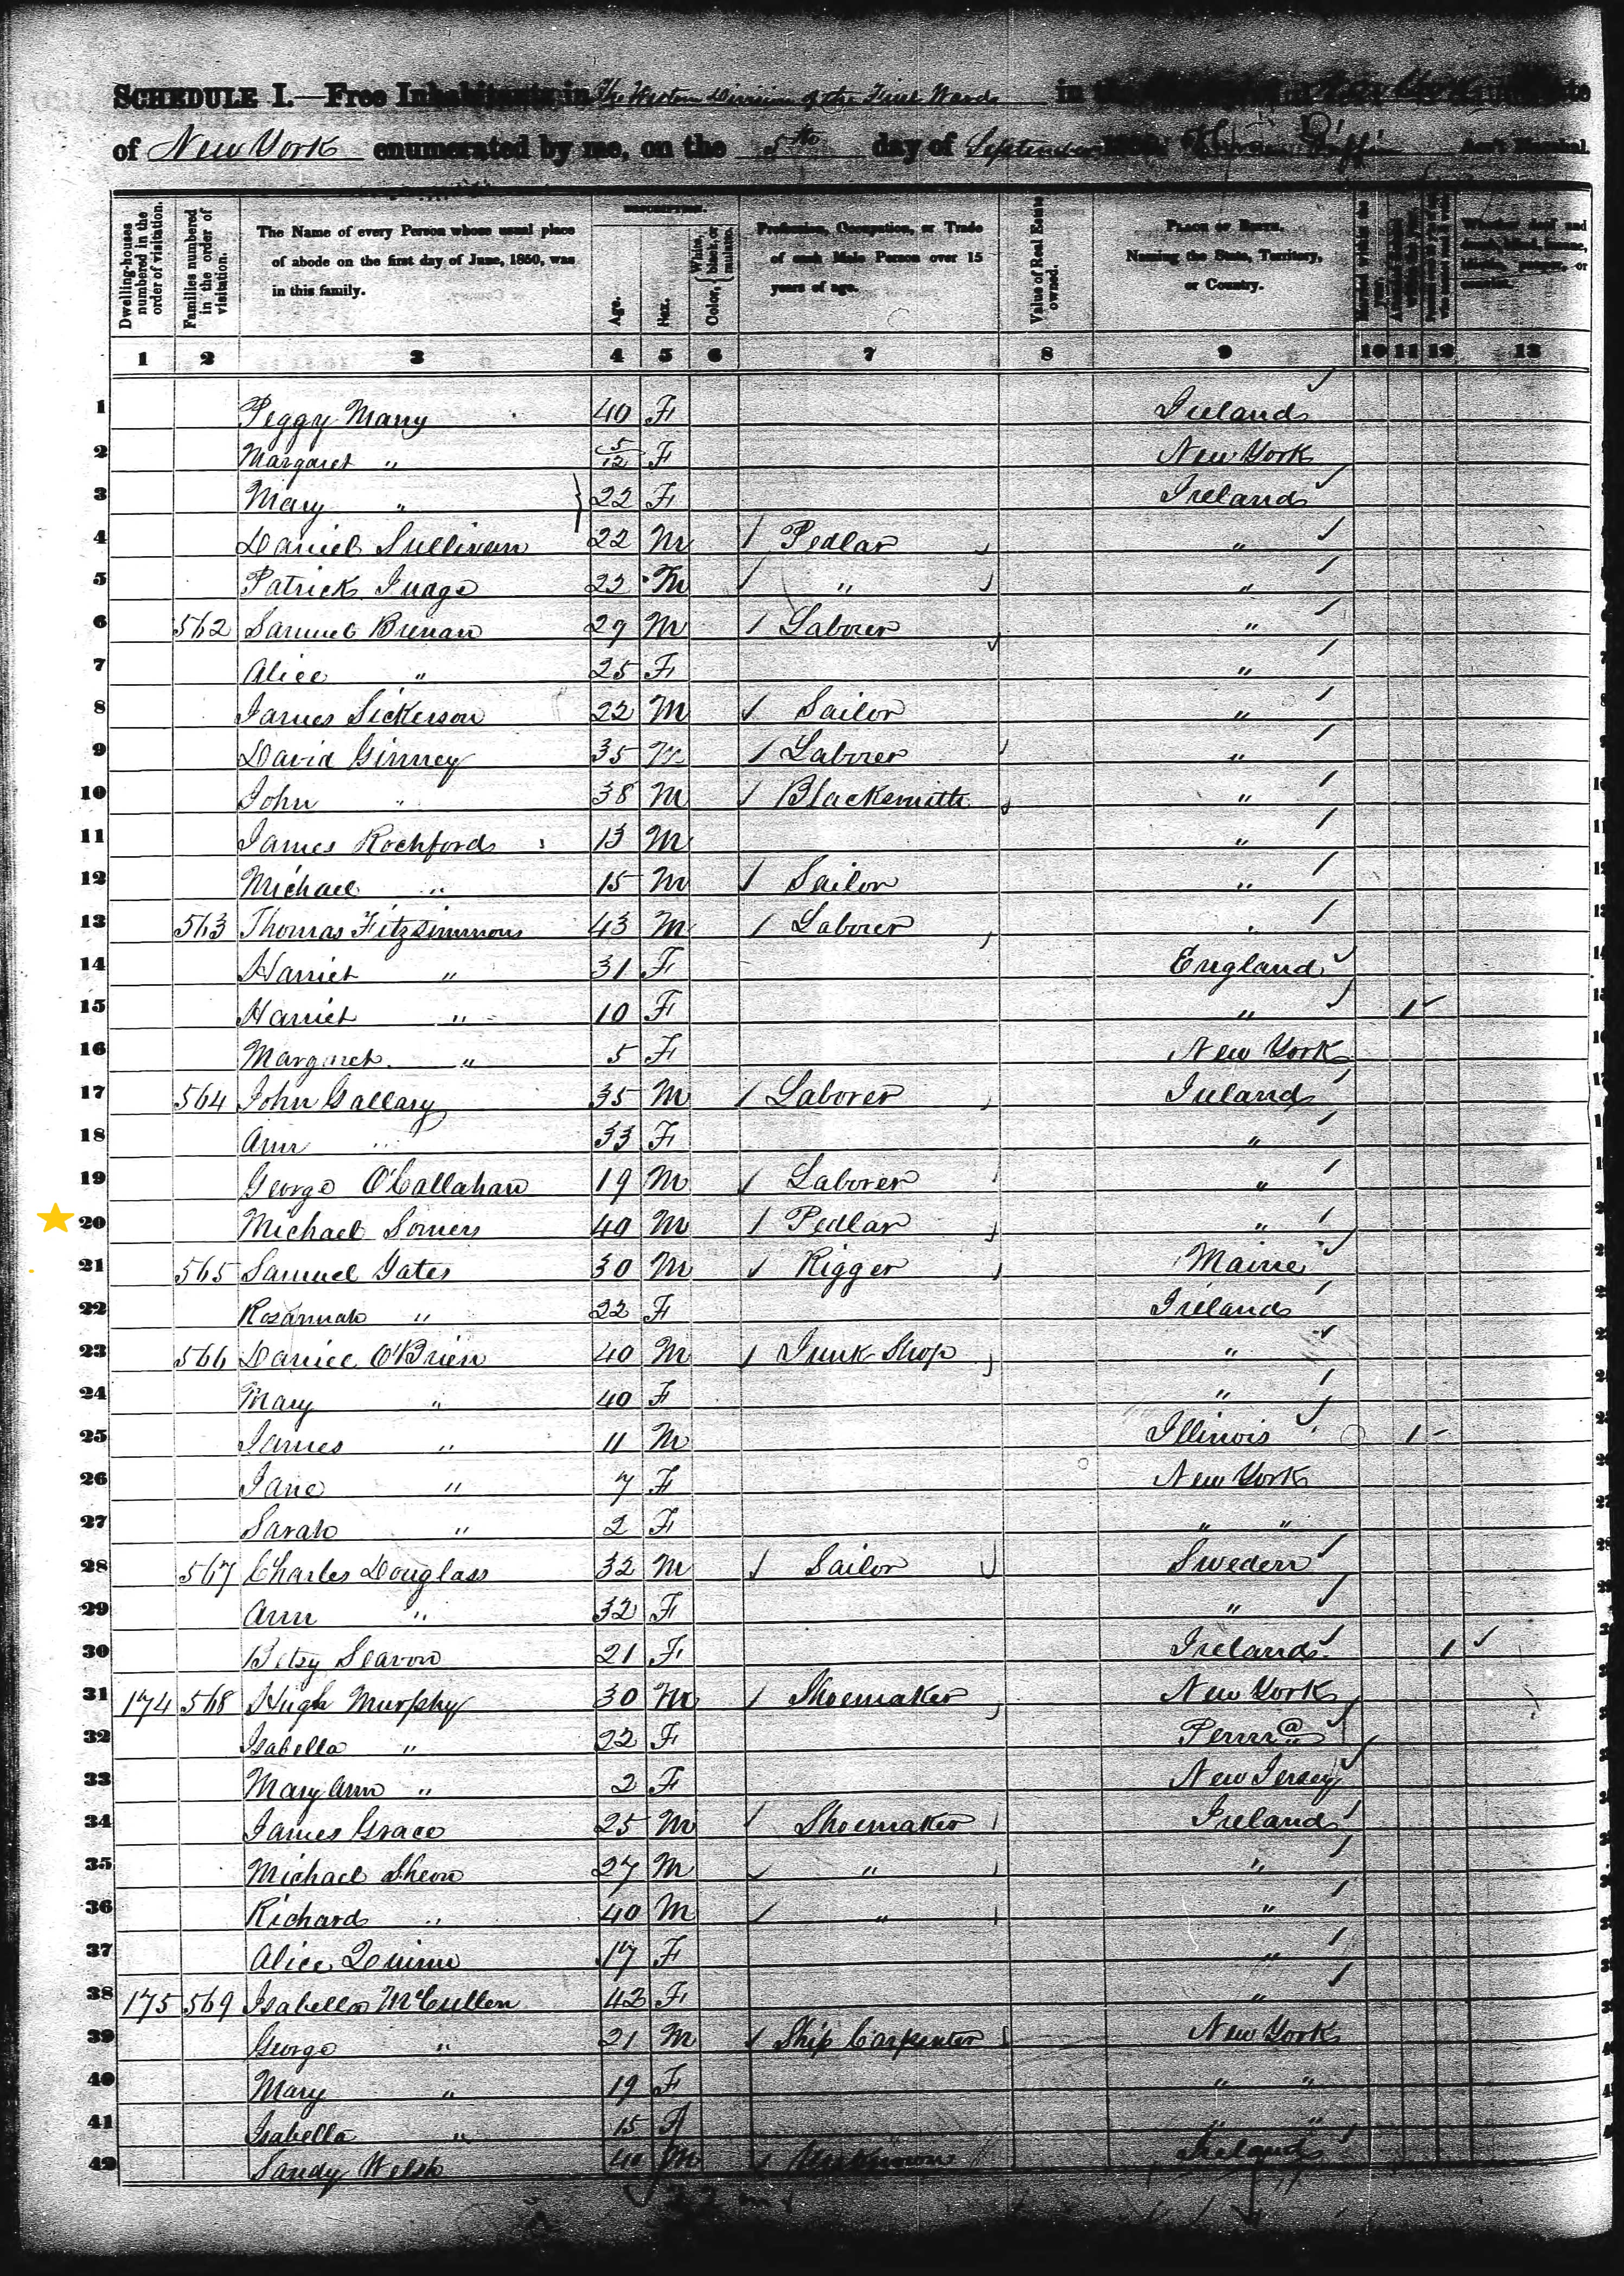 SCHEDULE I.—Free Inhabitants in The Western Division of the First Ward in the New York
of New York enumerated by me, on the 5th day of September
Dwelling-houses numbered in the order of visitation.
Families numbered in the order of visitation.
The Name of every Person whose usual place of abode on the first day of June, 1850, was in this family.
DESCRIPTION.
Age.
Sex.
Color, { White, black, or mulatto.
Profession, Occupation, or Trade of each Male Person over 15 years of age.
Value of Real Estate owned.
PLACE OF BIRTH. Naming the State, Territory, or Country.
Whether deaf and dumb, blind, insane, idiotic, pauper, or convict.
1 2 3 4 5 6 7 8 9 10 11 12 13
1 Peggy Many 40 F Ireland
2 Margaret " 5/12 F New York
3 Mary " 22 F Ireland
4 Daniel Sullivan 22 M 1 Pedlar "
5 Patrick Judge 22 M 1 " "
6 562 Samuel Brenan 29 M 1 Laborer "
7 Alice " 25 F "
8 James Sickerson 22 M 1 Sailor "
9 David Ginney 35 M 1 Laborer "
10 John " 38 M 1 Blacksmith "
11 James Rochford 13 M "
12 Michael " 15 M 1 Sailor "
13 563 Thomas Fitzsimmons 43 M 1 Laborer "
14 Harriet " 31 F England
15 Harriet " 10 F " 1
16 Margaret " 5 F New York
17 564 John Gallary 35 M 1 Laborer Ireland
18 Ann " 33 F "
19 George O'Callahan 19 M 1 Laborer "
20 Michael Somers 40 M 1 Pedlar "
21 565 Samuel Gates 30 M 1 Rigger Maine
22 Rosannah " 22 F Ireland
23 566 Daniel O'Brien 40 M 1 Junk Shop "
24 Mary " 40 F "
25 James " 11 M Illinois 1
26 Jane " 7 F New York
27 Sarah " 2 F " "
28 567 Charles Douglass 32 M 1 Sailor Sweden
29 Ann " 32 F "
30 Betsy Seavon 21 F Ireland 1
31 174 568 Hugh Murphy 30 M 1 Shoemaker New York
32 Isabella " 22 F Penna
33 Mary Ann " 2 F New Jersey
34 James Grace 25 M 1 Shoemaker Ireland
35 Michael Sheon 27 M 1 " "
36 Richard " 40 M 1 " "
37 Alice Quinn 17 F "
38 175 569 Isabella McCullen 42 F "
39 George " 21 M 1 Ship Carpenter New York
40 Mary " 19 F " "
41 Isabella " 15 F " "
42 Sandy Welsh 40 M 1 Unknown Ireland